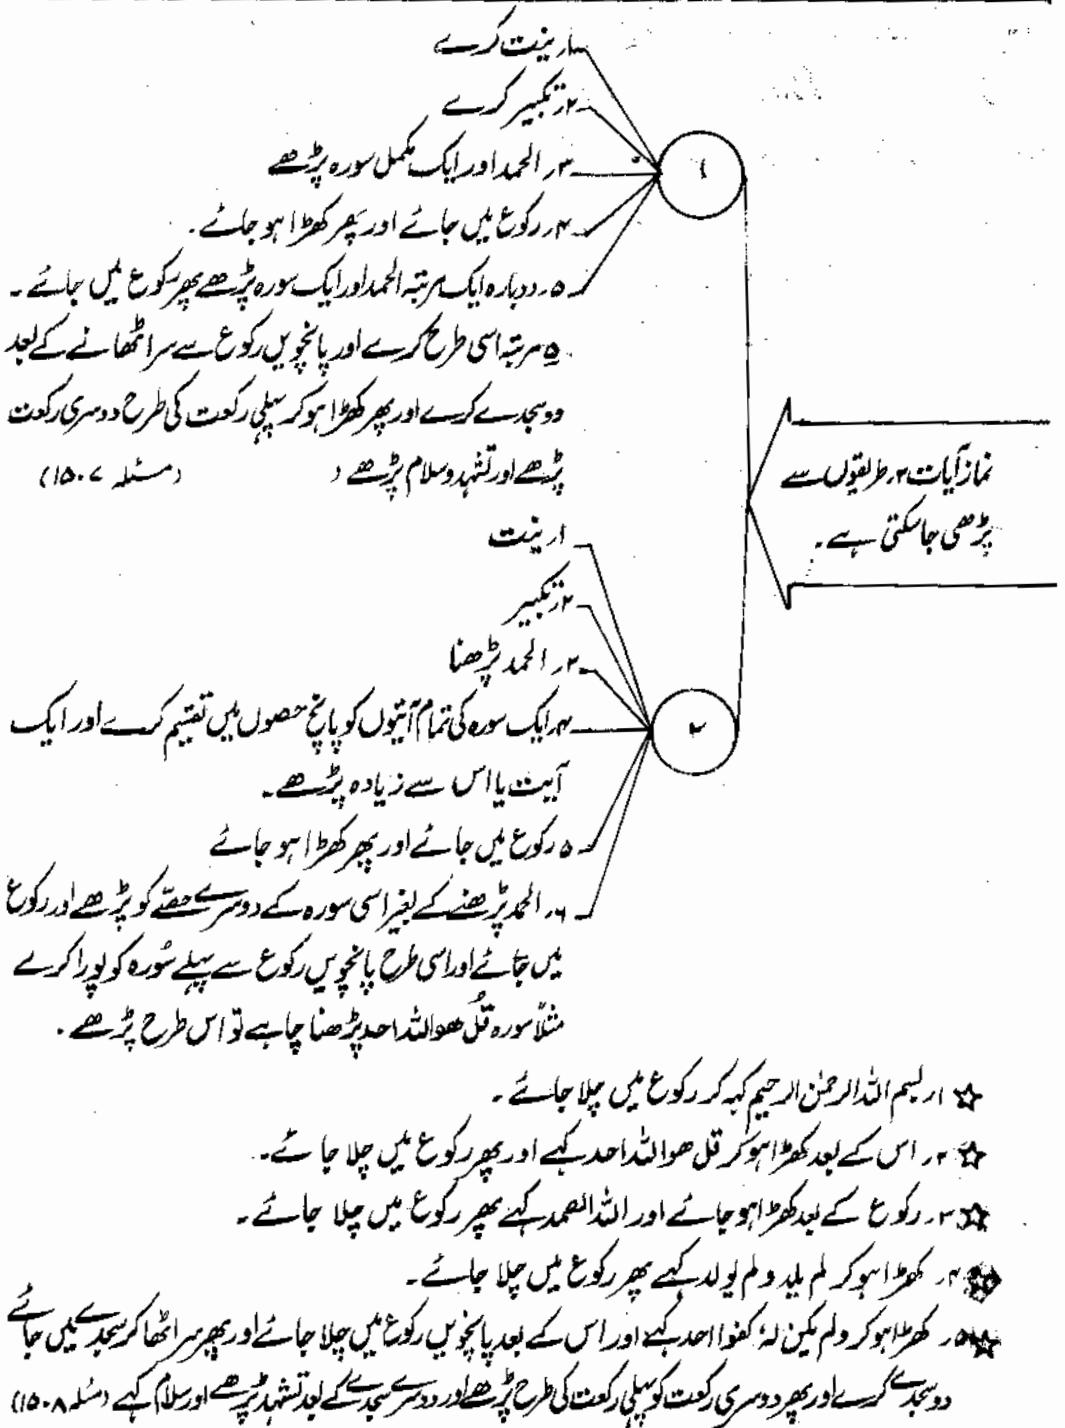 نماز آیات ۲ر طریقوں سے
پڑھی جا سکتی ہے۔
۱
۱ر نیت کرے
۲ر تکبیر کرے
۳ر الحمد اور ایک مکمل سورہ پڑھے
۴ر رکوع میں جائے اور پھر کھڑا ہو جائے۔
۵ر دوبارہ ایک مرتبہ الحمد اور ایک سورہ پڑھے پھر رکوع میں جائے۔
۵ مرتبہ اسی طرح کرے اور پانچویں رکوع سے سر اٹھانے کے بعد
دو سجدے کرے اور پھر کھڑا ہو کر پہلی رکعت کی طرح دوسری رکعت
پڑھے اور تشہد و سلام پڑھے ( (مسئلہ ۱۵۰۷)
۲
۱ر نیت
۲ر تکبیر
۳ر الحمد پڑھنا
۴ر ایک سورہ کی تمام آیتوں کو پانچ حصوں میں تقسیم کرے اور ایک
آیت یا اس سے زیادہ پڑھے۔
۵ر رکوع میں جائے اور پھر کھڑا ہو جائے
۶ر الحمد پڑھنے کے بغیر اسی سورہ کے دوسرے حصّے کو پڑھے اور رکوع
میں جائے اور اسی طرح پانچویں رکوع سے پہلے سُورہ کو پورا کرے
مثلاً سورہ قُل ھو اللہ احد پڑھنا چاہے تو اس طرح پڑھے۔
☆ ۱ر بسم اللہ الرحمٰن الرحیم کہہ کر رکوع میں چلا جائے۔
☆ ۲ر اس کے بعد کھڑا ہو کر قل ھو اللہ احد کہے اور پھر رکوع میں چلا جائے۔
☆ ۳ر رکوع کے بعد کھڑا ہو جائے اور اللہ الصمد کہے پھر رکوع میں چلا جائے۔
☆ ۴ر کھڑا ہو کر لم یلد و لم یولد کہے پھر رکوع میں چلا جائے۔
☆ ۵ر کھڑا ہو کر ولم یکن لہٗ کفوا احد کہے اور اس کے بعد پانچویں رکوع میں چلا جائے اور پھر سر اٹھا کر سجدے میں جائے
دو سجدے کرے اور پھر دوسری رکعت کو پہلی رکعت کی طرح پڑھے اور دوسرے سجدے کے بعد تشہد پڑھے اور سلام کہے (مسئلہ ۱۵۰۸)